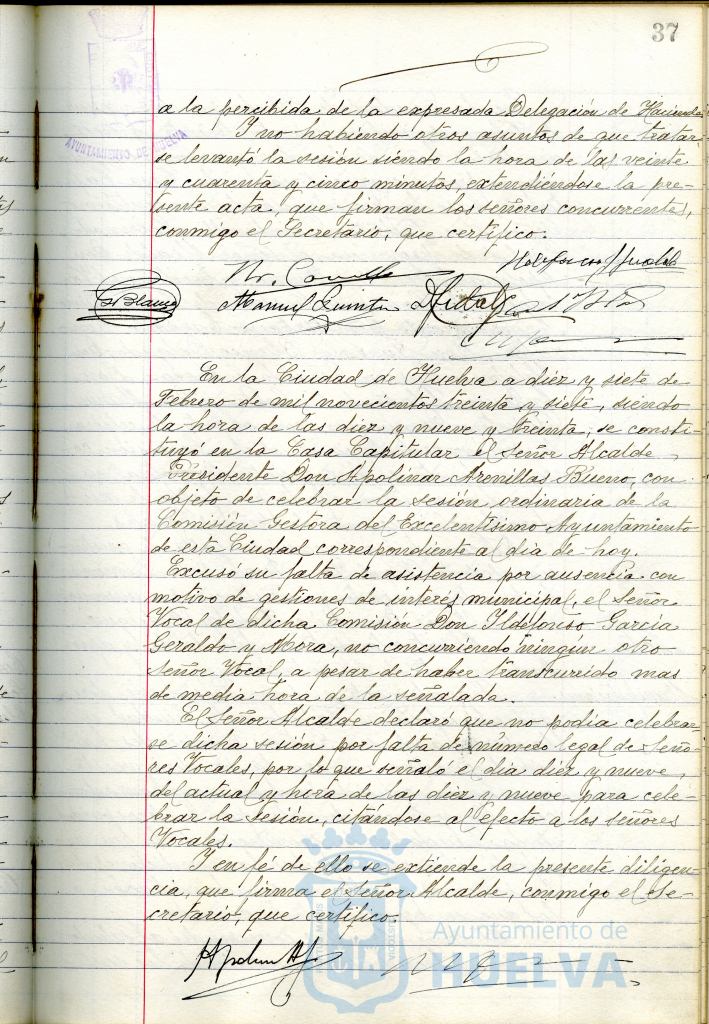 37
AYUNTAMIENTO DE HUELVA
a la percibida de la expresada Delegación de Hacienda
Y no habiendo otros asuntos de que tratar
se levantó la sesión siendo la hora de las veinte
y cuarenta y cinco minutos, extendiéndose la pre-
sente acta, que firman los señores concurrentes,
conmigo el Secretario, que certifico.
Manuel Quintin
En la Ciudad de Huelva a diez y siete de
Febrero de mil novecientos treinta y siete, siendo
la hora de las diez y nueve y treinta, se consti-
tuyó en la Casa Capitular el Señor Alcalde
Presidente Don Apolinar Arenillas Bueno, con
objeto de celebrar la sesión ordinaria de la
Comisión Gestora del Excelentísimo Ayuntamiento
de esta Ciudad correspondiente al día de hoy.
Excusó su falta de asistencia por ausencia con
motivo de gestiones de interés municipal, el Señor
Vocal de dicha Comisión Don Ildefonso Garcia
Geraldo y Mora, no concurriendo ningun otro
Señor Vocal, a pesar de haber transcurrido mas
de media hora de la señalada.
El Señor Alcalde declaró que no podia celebrar-
se dicha sesión por falta de número legal de Seño-
res Vocales, por lo que señaló el día diez y nueve
del actual y hora de las diez y nueve para cele-
brar la Sesión, citándose al efecto a los señores
Vocales.
Y en fé de ello se extiende la presente diligen-
cia, que firma el Señor Alcalde, conmigo el Se-
cretario, que certifico.
Ayuntamiento de
HUELVA